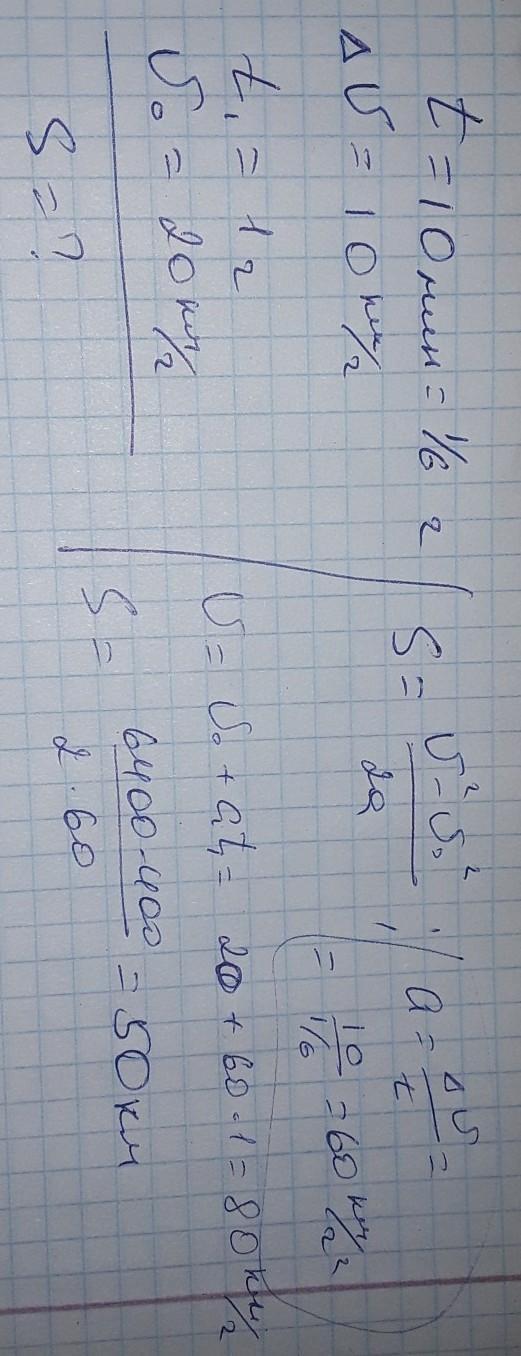 t = 10 мин = 1/6 ч
Δv = 10 км/ч
t₁ = 1 ч
v₀ = 20 км/ч
S = ?
S = (v² - v₀²)/2a ; a = Δv/t =
= 10/(1/6) = 60 км/ч²
v = v₀ + at₁ = 20 + 60·1 = 80 км/ч
S = (6400-400)/(2·60) = 50 км